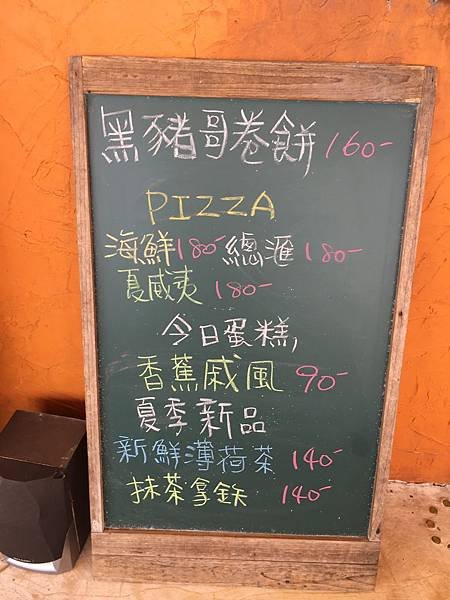 黑豬哥卷餅 160-
PIZZA
海鮮180- 總滙 180-
夏威夷 180-
今日蛋糕,
香蕉戚風 90-
夏季新品
新鮮薄荷茶 140-
抹茶拿鉄 140-